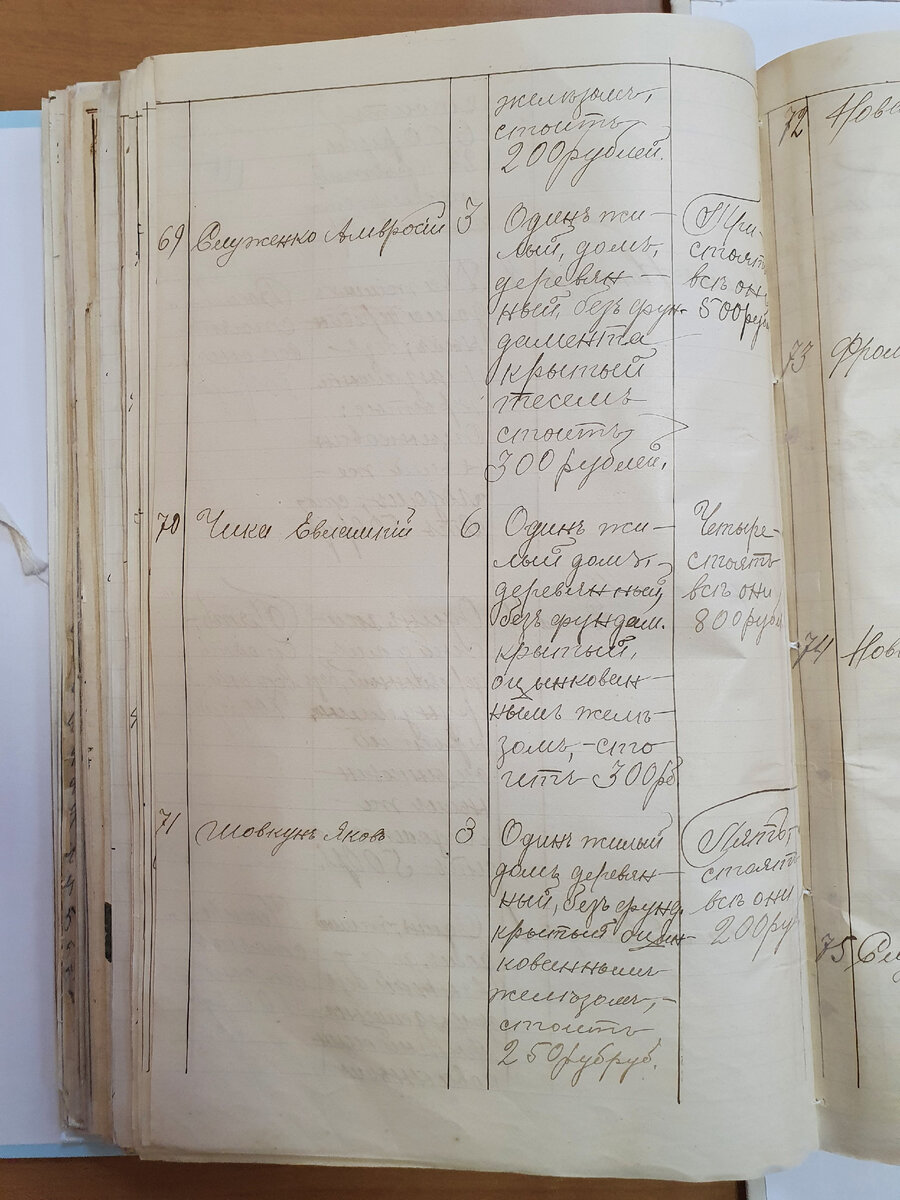 желѣзомъ,
стоитъ
200 рублей.
69 Служенко Амвросій 3
Одинъ жи-
лый, домъ,
деревян-
ный, безъ фун-
дамента
крытый
тесомъ
стоитъ,
300 рублей.
Три-
стоятъ
всѣ они
500 руб
70 Чика Евлампій 6
Одинъ жи-
лый домъ,
деревянный,
безъ фундам.
крытый,
оцынкован-
нымъ желѣ-
зомъ, -сто
итъ 300 рб
Четыре-
стоятъ
всѣ они
800 руб
71 Шовкунъ Яковъ 3
Одинъ жилый
домъ деревян-
ный, безъ фунд.
крытый оцын-
кованнымъ
желѣзомъ,-
стоитъ
250 рубруб.
Пять,
стоятъ
всѣ они
200 ру
72 Нова
73 Фром
74 Нов
75 Слу